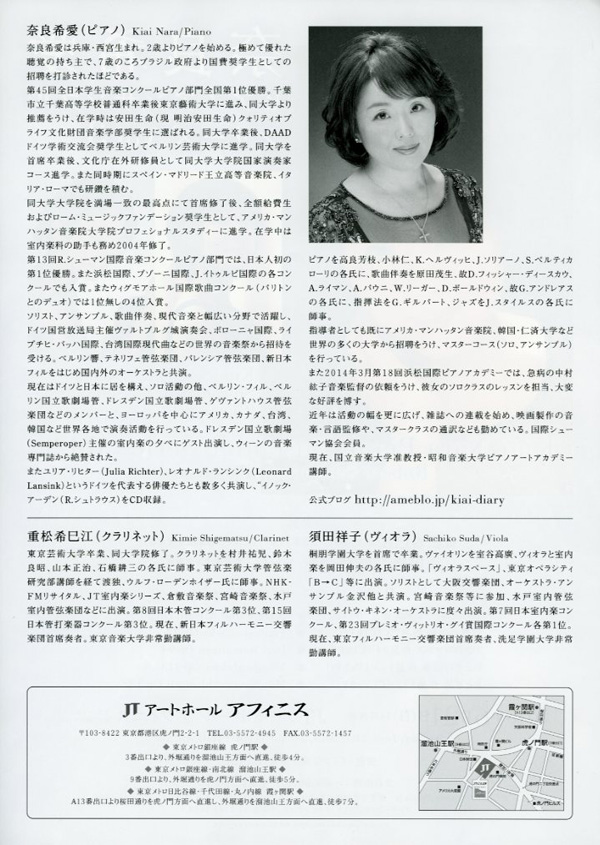 奈良希愛(ピアノ) Kiai Nara/Piano
奈良希愛は兵庫・西宮生まれ。2歳よりピアノを始める。極めて優れた
聴覚の持ち主で、7歳のころブラジル政府より国費奨学生としての
招聘を打診されたほどである。
第45回全日本学生音楽コンクールピアノ部門全国第1位優勝。千葉
市立千葉高等学校普通科卒業後東京藝術大学に進み、同大学より
推薦をうけ、在学時は安田生命(現 明治安田生命)クォリティオブ
ライフ文化財団音楽学部奨学生に選ばれる。同大学卒業後、DAAD
ドイツ学術交流会奨学生としてベルリン芸術大学に進学。同大学を
首席卒業後、文化庁在外研修員として同大学大学院国家演奏家
コース進学。また同時期にスペイン・マドリード王立高等音楽院、イタ
リア・ローマでも研鑽を積む。
同大学大学院を満場一致の最高点にて首席修了後、全額給費
生およびローム・ミュージックファンデーション奨学生として、アメリカ・マン
ハッタン音楽院大学院プロフェショナルスタディーに進学。在学中は
室内楽科の助手も務め2004年修了。
第13回R.シューマン国際音楽コンクールピアノ部門では、日本人初の
第1位優勝。また浜松国際、ブゾーニ国際、J.イトゥルビ国際の各コン
クールでも入賞。またウィグモアホール国際歌曲コンクール(バリトン
とのデュオ)では1位無しの4位入賞。
ソリスト、アンサンブル、歌曲伴奏、現代音楽と幅広い分野で活躍し、
ドイツ国営放送局主催ヴァルトブルグ城演奏会、ボローニャ国際、ライ
プチヒ・バッハ国際、台湾国際現代曲などの世界の音楽祭から招待を
受ける。ベルリン響、テネリフェ管弦楽団、バレンシア管弦楽団、新日本
フィルをはじめ国内外のオーケストラと共演。
現在はドイツと日本に居を構え、ソロ活動の他、ベルリン・フィル、ベル
リン国立歌劇場管、ドレスデン国立歌劇場管、ゲヴァントハウス管弦
楽団などのメンバーと、ヨーロッパを中心にアメリカ、カナダ、台湾、
韓国など世界各地で演奏活動を行っている。ドレスデン国立歌劇場
(Semperoper)主催の室内楽の夕べにゲスト出演し、ウィーンの音楽
専門誌から絶賛された。
またユリア・リヒター(Julia Richter)、レオナルド・ランシンク(Leonard
Lansink)というドイツを代表する俳優たちとも数多く共演し、“イノック・
アーデン(R.シュトラウス)をCD収録。
ピアノを高良芳枝、小林仁、K.ヘルヴィッヒ、J.ソリアーノ、S.ペルティカ
ローリの各氏に、歌曲伴奏を原田茂生、故D.フィッシャー・ディースカウ、
A.ライマン、A.バウニ、W.リーガー、D.ボールドウィン、故G.アンドレアス
の各氏に、指揮法をG.ギルバート、ジャズをJ.スタイルスの各氏に
師事。
指導者としても既にアメリカ・マンハッタン音楽院、韓国・仁済大学など
世界の多くの大学から招聘をうけ、マスターコース(ソロ、アンサンブル)
を行っている。
また2014年3月第18回浜松国際ピアノアカデミーでは、急病の中村
紘子音楽監督の依頼をうけ、彼女のソロクラスのレッスンを担当、大変
な好評を博す。
近年は活動の幅を更に広げ、雑誌への連載を始め、映画製作の音
楽・言語監修や、マスタークラスの通訳なども勤めている。国際シュー
マン協会会員。
現在、国立音楽大学准教授・昭和音楽大学ピアノアートアカデミー
講師。
公式ブログ http://ameblo.jp/kiai-diary
重松希巳江(クラリネット) Kimie Shigematsu/Clarinet
東京芸術大学卒業、同大学院修了。クラリネットを村井祐児、鈴木
良昭、山本正治、石橋耕三の各氏に師事。東京芸術大学管弦楽
研究部講師を経て渡独、ウルフ・ローデンホイザー氏に師事。NHK-
FMリサイタル、JT室内楽シリーズ、倉敷音楽祭、宮崎音楽祭、水戸
室内管弦楽団などに出演。第8回日本木管コンクール第3位、第15回
日本管打楽器コンクール第3位。現在、新日本フィルハーモニー交響
楽団首席奏者。東京音楽大学非常勤講師。
須田祥子(ヴィオラ) Sachiko Suda/Viola
桐朋学園大学を首席で卒業。ヴァイオリンを室谷高廣、ヴィオラと室内
楽を岡田伸夫の各氏に師事。「ヴィオラスペース」、東京オペラシティ
「B→C」等に出演。ソリストとして大阪交響楽団、オーケストラ・アン
サンブル金沢他と共演。宮崎音楽祭等に参加、水戸室内管弦
楽団、サイトウ・キネン・オーケストラに度々出演。第7回日本室内楽コン
クール、第23回プレミオ・ヴィットリオ・グイ賞国際コンクール各第1位。
現在、東京フィルハーモニー交響楽団首席奏者、洗足学園大学非常
勤講師。
JT アートホール アフィニス
〒103-8422 東京都港区虎ノ門2-2-1 TEL.03-5572-4945 FAX.03-5572-1457
◆ 東京メトロ銀座線 虎ノ門駅 ◆
3番出口より、外堀通りを溜池山王方面へ直進、徒歩4分。
◆ 東京メトロ銀座線・南北線 溜池山王駅 ◆
9番出口より、外堀通りを虎ノ門方面へ直進、徒歩5分。
◆ 東京メトロ日比谷線・千代田線・丸ノ内線 霞ヶ関駅 ◆
A13番出口より桜田通りを虎ノ門方面へ直進し、外堀通りを溜池山王方面へ直進、徒歩7分。
霞ヶ関駅
溜池山王駅
虎ノ門駅
JT
虎ノ門ヒルズ